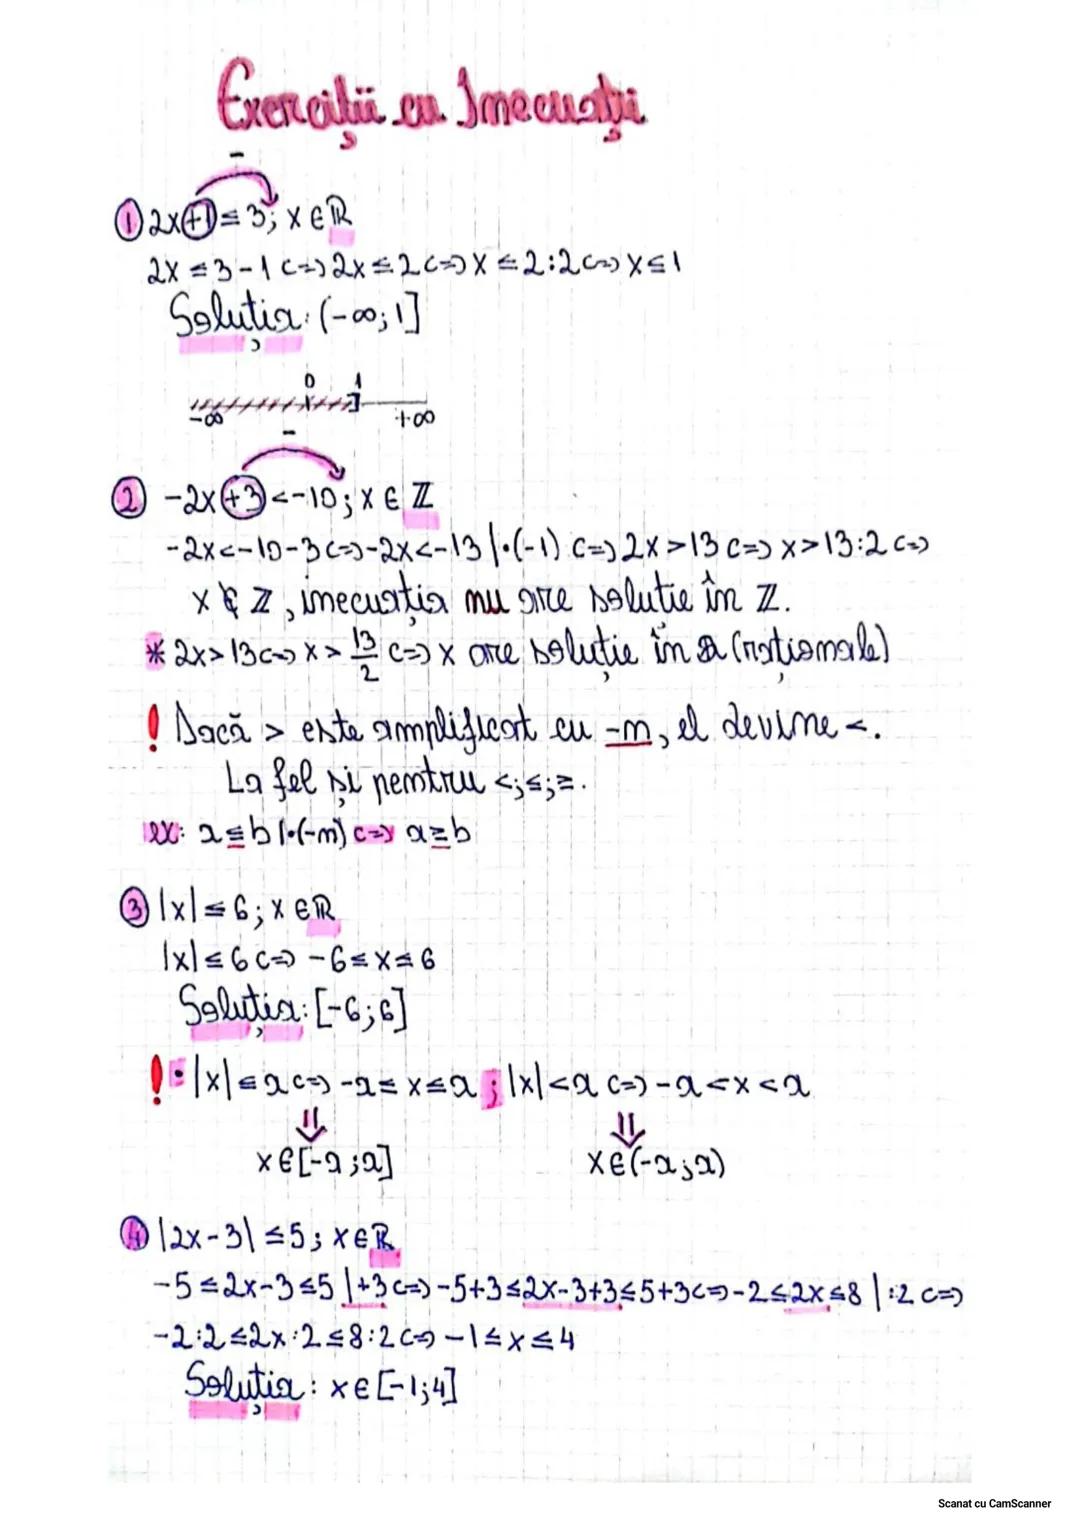 Exerciții cu Inecuații
-
① 2x+1 ≤ 3; x ∈ ℝ
2x ≤ 3-1 <=> 2x ≤ 2 <=> x ≤ 2:2 <=> x ≤ 1
Soluția: (-∞; 1]
0 1
-∞ +∞
-
② -2x+3 < -10; x ∈ ℤ
-2x < -10-3 <=> -2x < -13 |·(-1) <=> 2x > 13 <=> x > 13:2 <=>
x ∉ ℤ, inecuația nu are soluție în ℤ.
* 2x > 13 <=> x > 13/2 <=> x are soluție în Q (raționale)
! Dacă > este amplificat cu -m, el devine <.
La fel și pentru <; ≤; ≥.
ex: a ≤ b |·(-m) <=> a ≥ b
③ |x| ≤ 6; x ∈ ℝ
|x| ≤ 6 <=> -6 ≤ x ≤ 6
Soluția: [-6; 6]
! • |x| ≤ a <=> -a ≤ x ≤ a ; |x| < a <=> -a < x < a
⇓ ⇓
x ∈ [-a; a] x ∈ (-a; a)
④ |2x-3| ≤ 5; x ∈ ℝ
-5 ≤ 2x-3 ≤ 5 |+3 <=> -5+3 ≤ 2x-3+3 ≤ 5+3 <=> -2 ≤ 2x ≤ 8 |:2 <=>
-2:2 ≤ 2x:2 ≤ 8:2 <=> -1 ≤ x ≤ 4
Soluția: x ∈ [-1; 4]
Scanat cu CamScanner